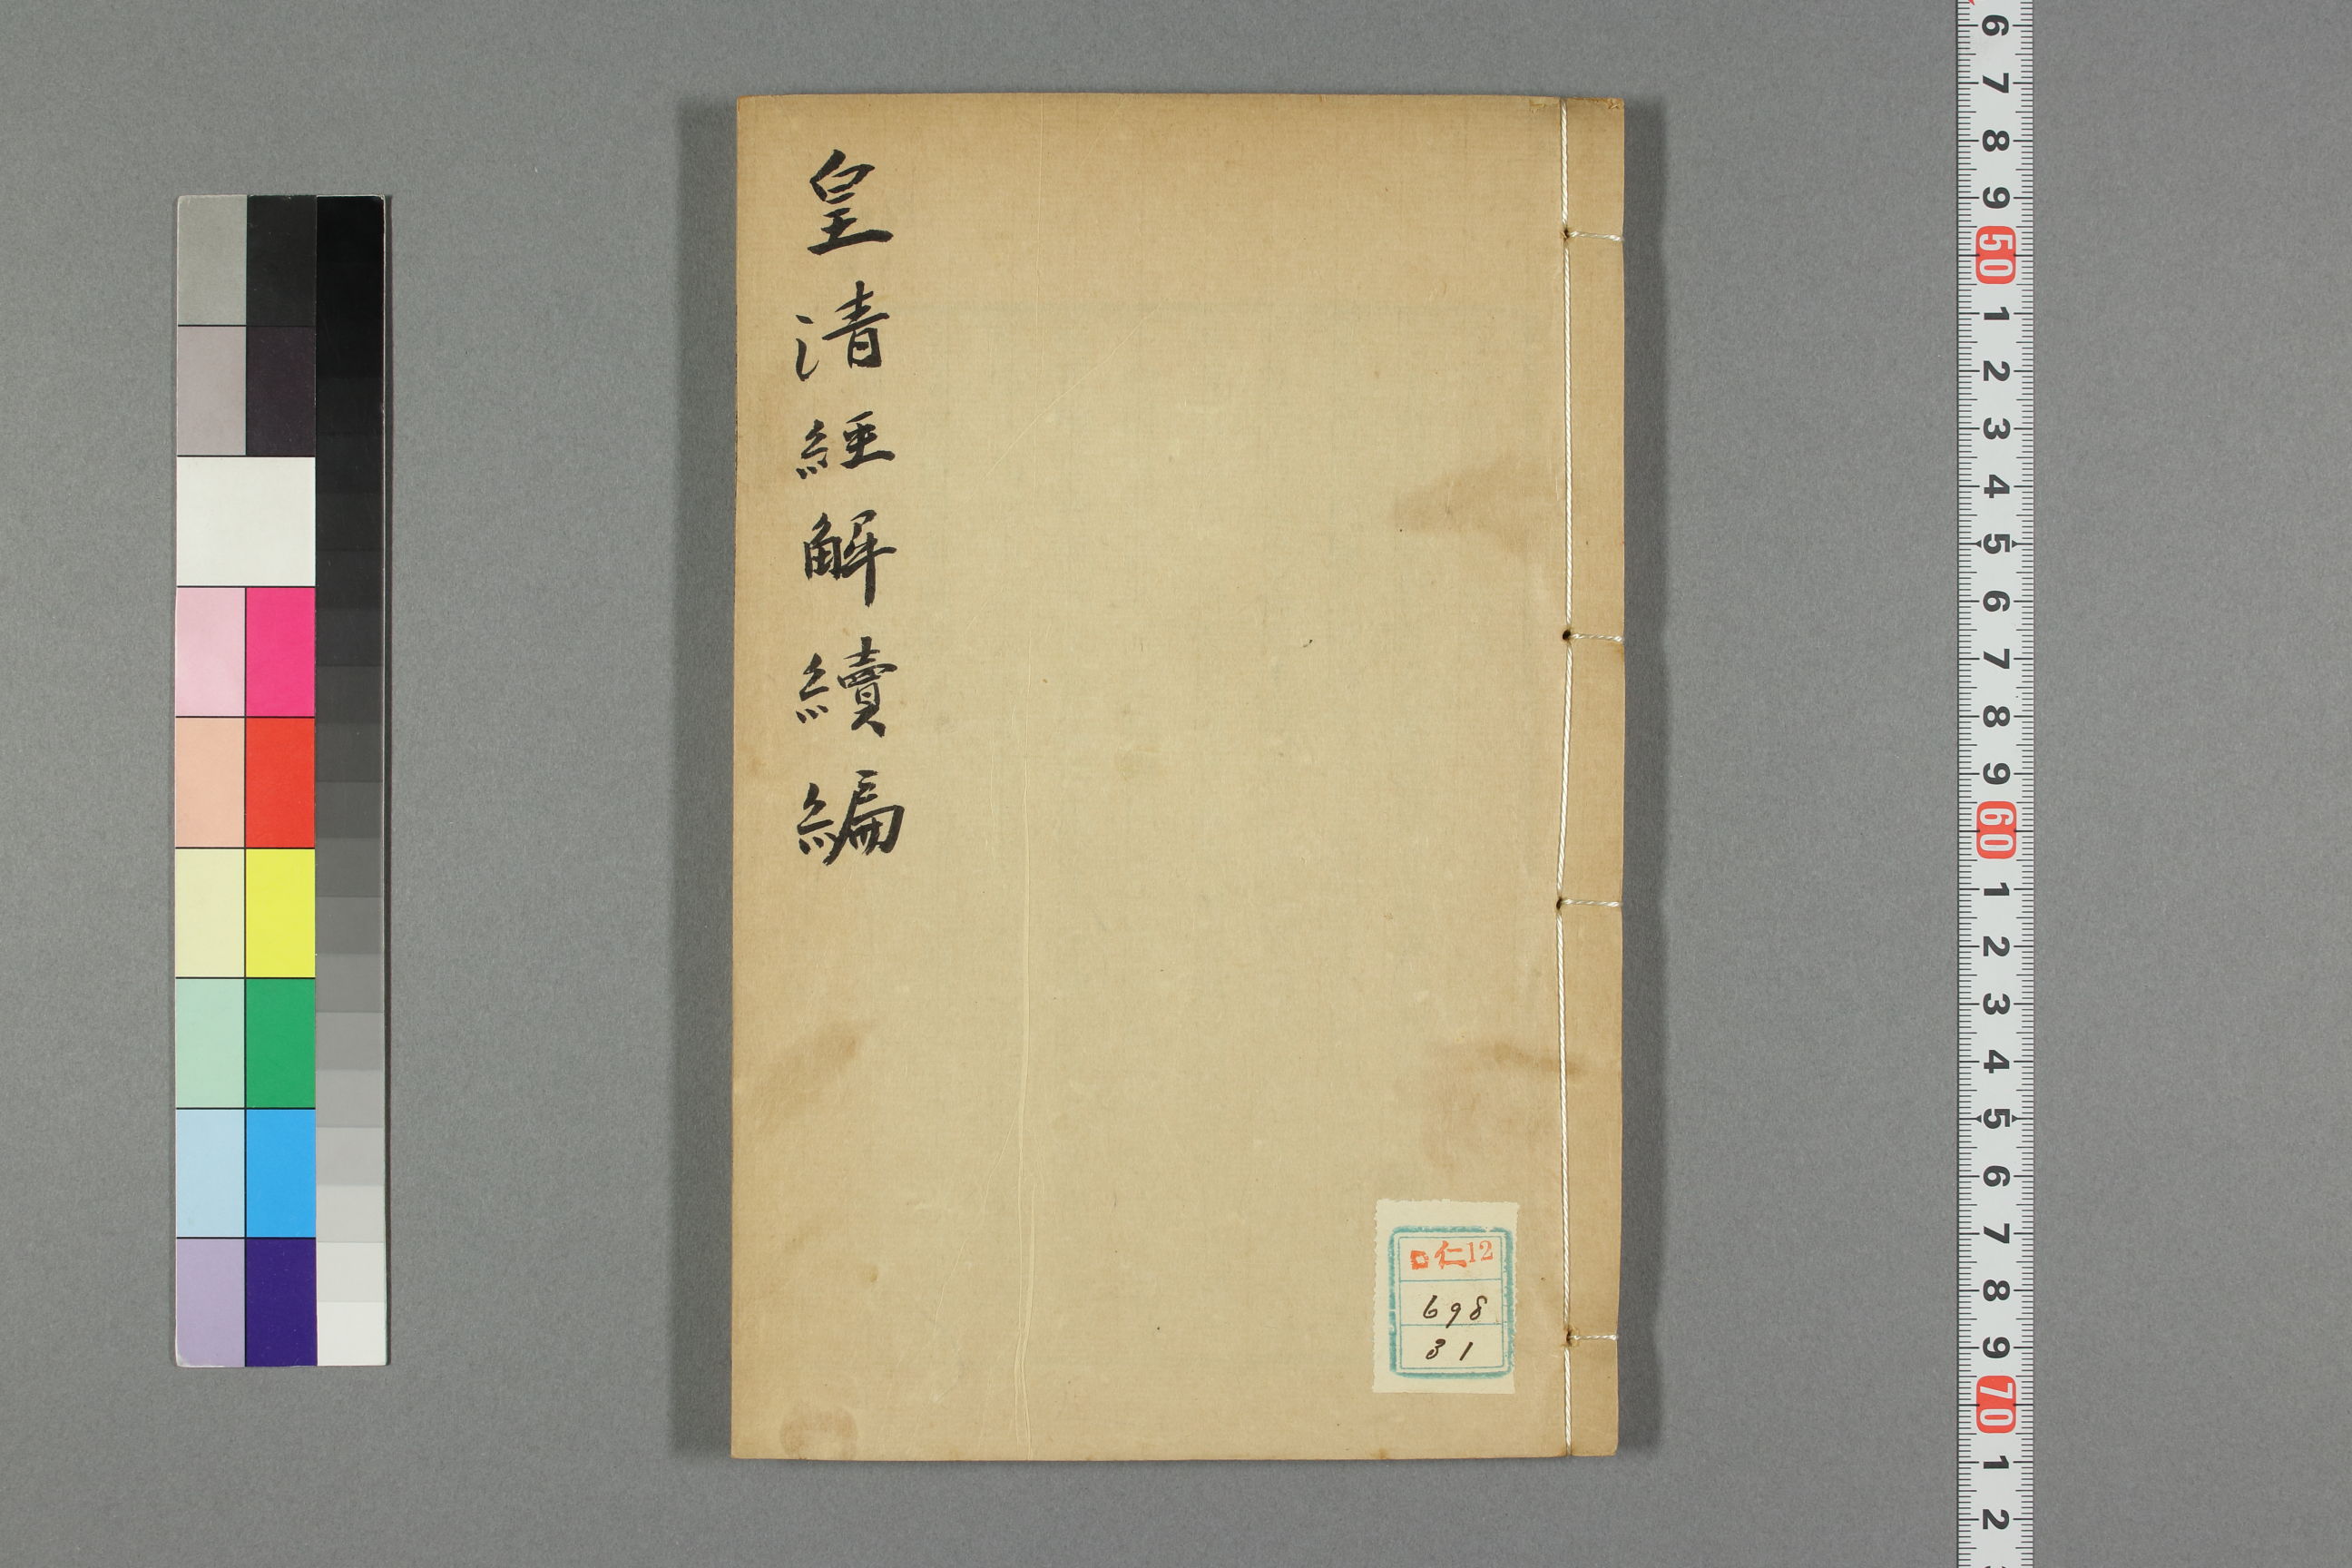 皇清經解續編
口仁12
698
31
6
7
8
9
50
1
2
3
4
5
6
7
8
9
60
1
2
3
4
5
6
7
8
9
70
1
2